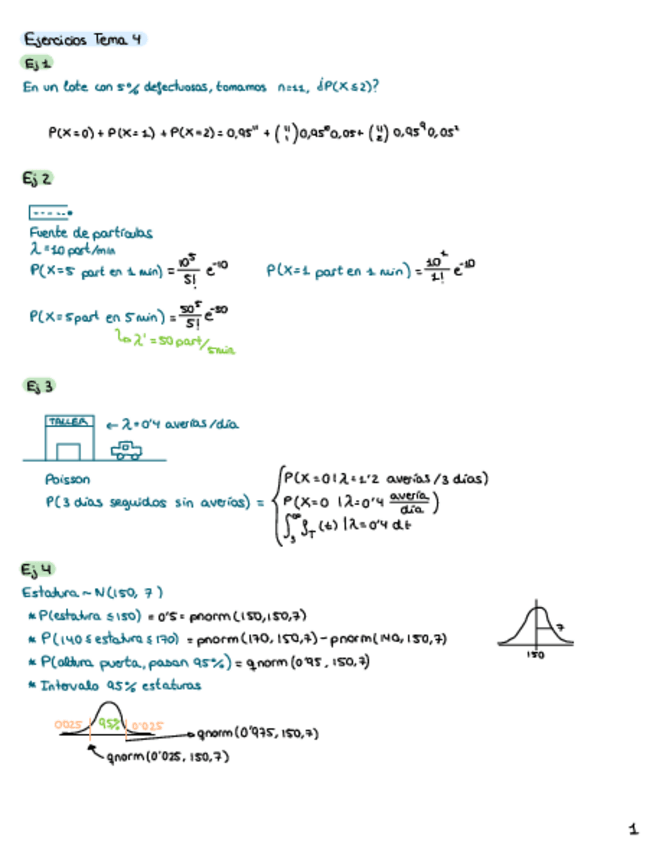 Ejercicios Tema 4
Ej 1
En un lote con 5% defectuosas, tomamos n=11, ¿P(X≤2)?
P(X=0) + P(X=1) + P(X=2) = 0,95¹¹ + (11 1) 0,95¹⁰ 0,05 + (11 2) 0,95⁹ 0,05²
Ej 2
Fuente de partículas
λ = 10 part/min
P(X=5 part en 1 min) = 10⁵/5! e⁻¹⁰ P(X=1 part en 1 min) = 10¹/1! e⁻¹⁰
P(X=5 part en 5 min) = 50⁵/5! e⁻⁵⁰
↳ λ' = 50 part/5min
Ej 3
TALLER ← λ=0'4 averías/día
Poisson
P(3 días seguidos sin averías) =
P(X=0 | λ=1'2 averías/3 días)
P(X=0 | λ=0'4 avería/día)
∫₃^∞ f_T(t) | λ=0'4 dt
Ej 4
Estadura ~ N(150, 7)
* P(estatura ≤150) = 0'5 = pnorm(150,150,7)
* P(140 ≤ estatura ≤ 170) = pnorm(170, 150,7) - pnorm(140, 150,7)
* P(altura puerta, pasan 95%) = qnorm(0'95, 150,7)
* Intervalo 95% estaturas
7
150
0'025 95% 0'025
qnorm(0'975, 150,7)
qnorm(0'025, 150,7)
1